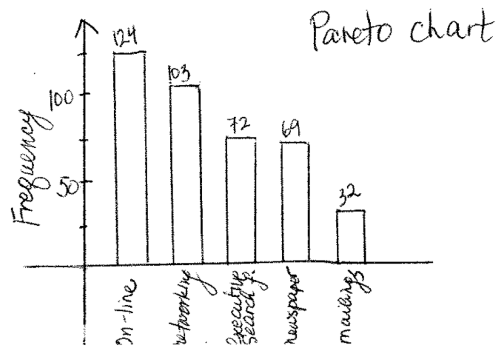 Pareto chart
Frequency
100
50
124
103
72
69
32
On-line
networking
Executive
Search f.
newspaper
mailings